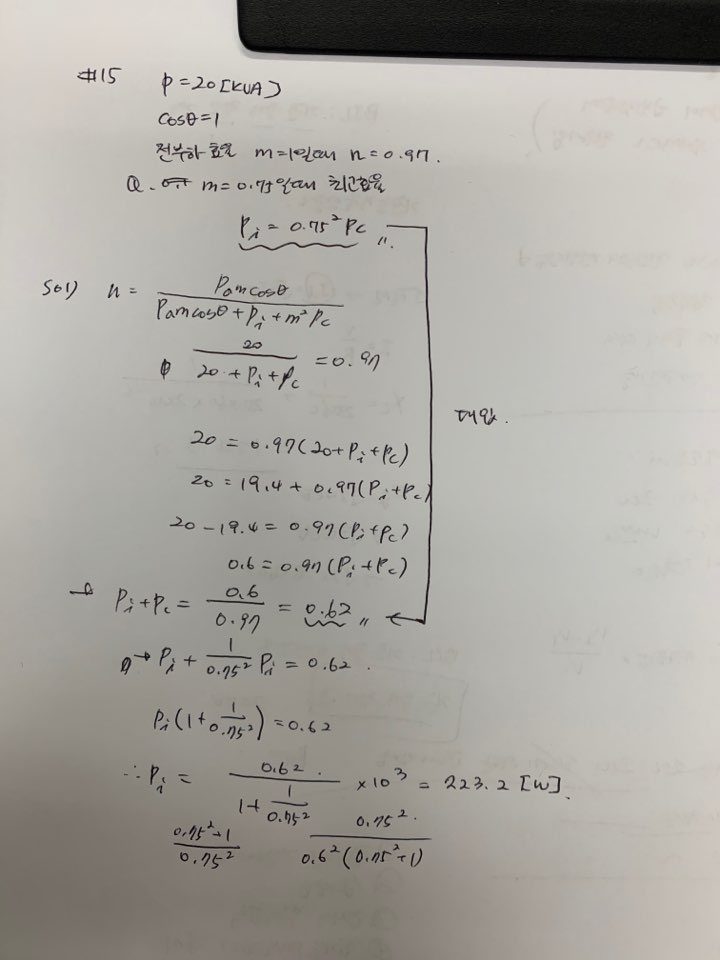 #15 P=20[KVA]
cosθ=1
전부하 효율 m=1일때 n=0.97.
Q. m=0.75일때 최고효율
Pi = 0.75² Pc 〃.
Sol) n = Pa m cosθ / (Pa m cosθ + Pi + m² Pc)
20 / (20 + Pi + Pc) = 0.97
대입.
20 = 0.97(20+Pi+Pc)
20 = 19.4 + 0.97(Pi+Pc)
20-19.4 = 0.97(Pi+Pc)
0.6 = 0.97(Pi+Pc)
→ Pi+Pc = 0.6/0.97 = 0.62 〃
→ Pi + 1/0.75² Pi = 0.62.
Pi(1+1/0.75²)=0.62
∴ Pi = 0.62. / (1+1/0.75²) ×10³ = 223.2 [W].
(0.75²+1)/0.75² 0.75². / (0.6²(0.75²+1))